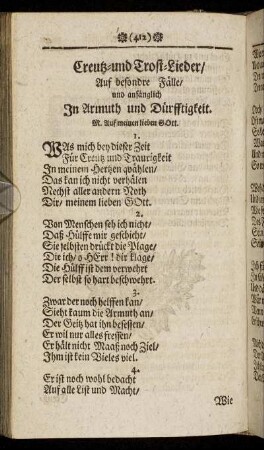 (412)
Creutz-und Trost-Lieder/
Auf besondre Fälle/
und anfänglich
In Armuth und Dürfftigkeit.
M. Auf meinen lieben GOtt.
1.
WAs mich bey dieser Zeit
Für Creutz und Traurigkeit
In meinem Hertzen quählen/
Das kan ich nicht verhälen
Nechst aller andern Noth
Dir/ meinem lieben GOtt.
2.
Von Menschen seh ich nicht/
Daß Hülffe mir geschicht/
Sie selbsten drückt die Plage/
Die ich/ o HErr! dir klage/
Die Hülff ist dem verwehrt
Der selbst so hart beschwehrt.
3.
Zwar der noch helffen kan/
Sieht kaum die Armuth an/
Der Geitz hat ihn besessen/
Er wil nur alles fressen/
Er hält nicht Maaß noch Ziel/
Ihm ist kein Vieles viel.
4.
Er ist noch wohl bedacht
Auf alle List und Macht/
Wie